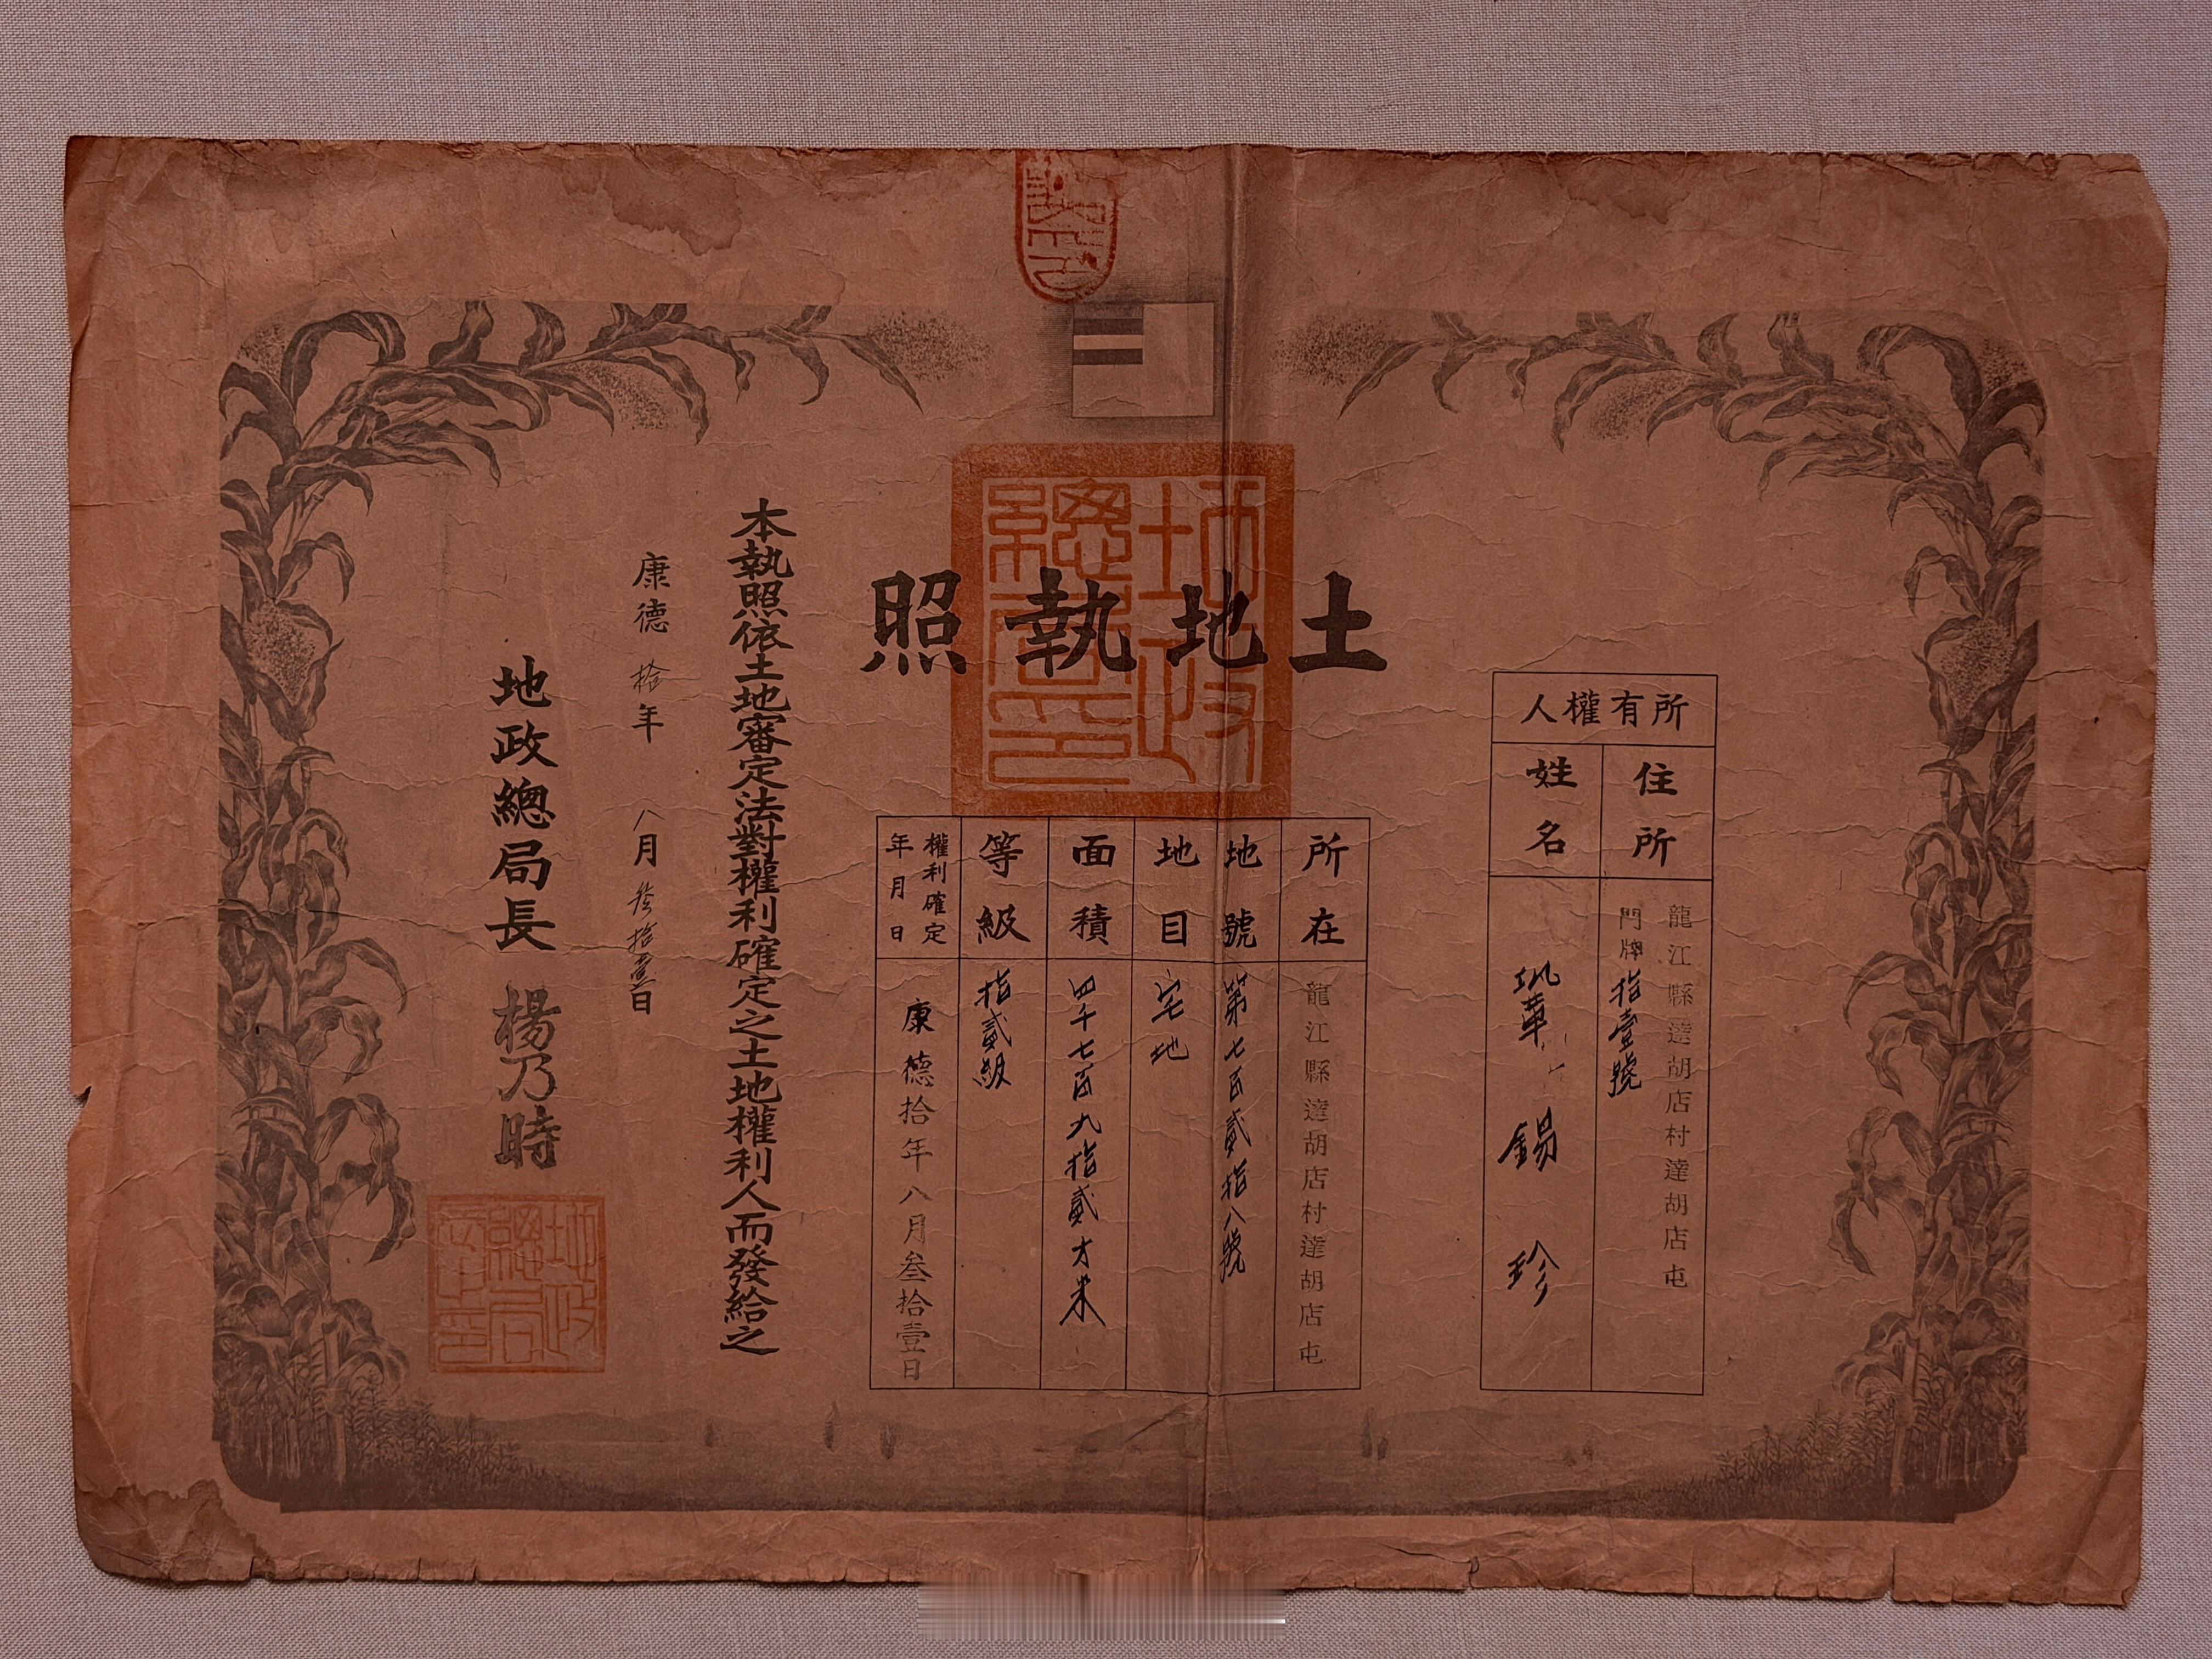 土地執照
所有權人
住所
龍江縣達胡店村達胡店屯
門牌拾壹號
姓名
鞏錫珍
所在
龍江縣達胡店村達胡店屯
地號
第七百貳拾八號
地目
宅地
面積
四千七百九拾貳方米
等級
拾貳級
權利確定
年月日
康德拾年八月叁拾壹日
本執照依土地審定法對權利確定之土地權利人而發給之
康德拾年八月叁拾壹日
地政總局長 楊乃時
地政總局印
地政總局章印